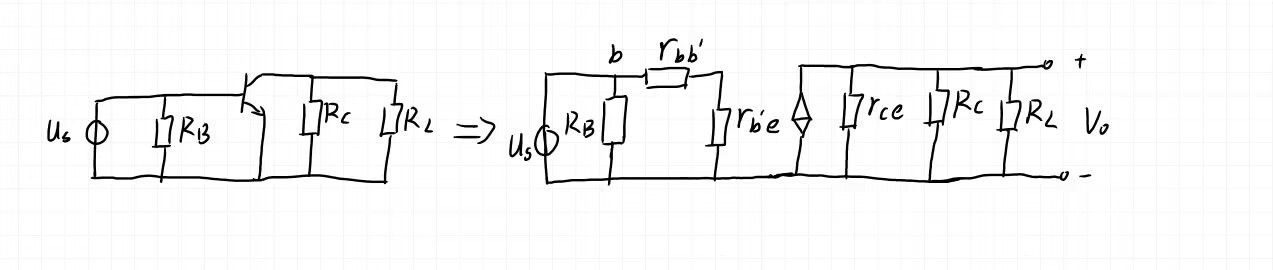 us
RB
Rc
RL
=>
us
RB
b
rbb'
rb'e
rce
Rc
RL
+
Vo
-